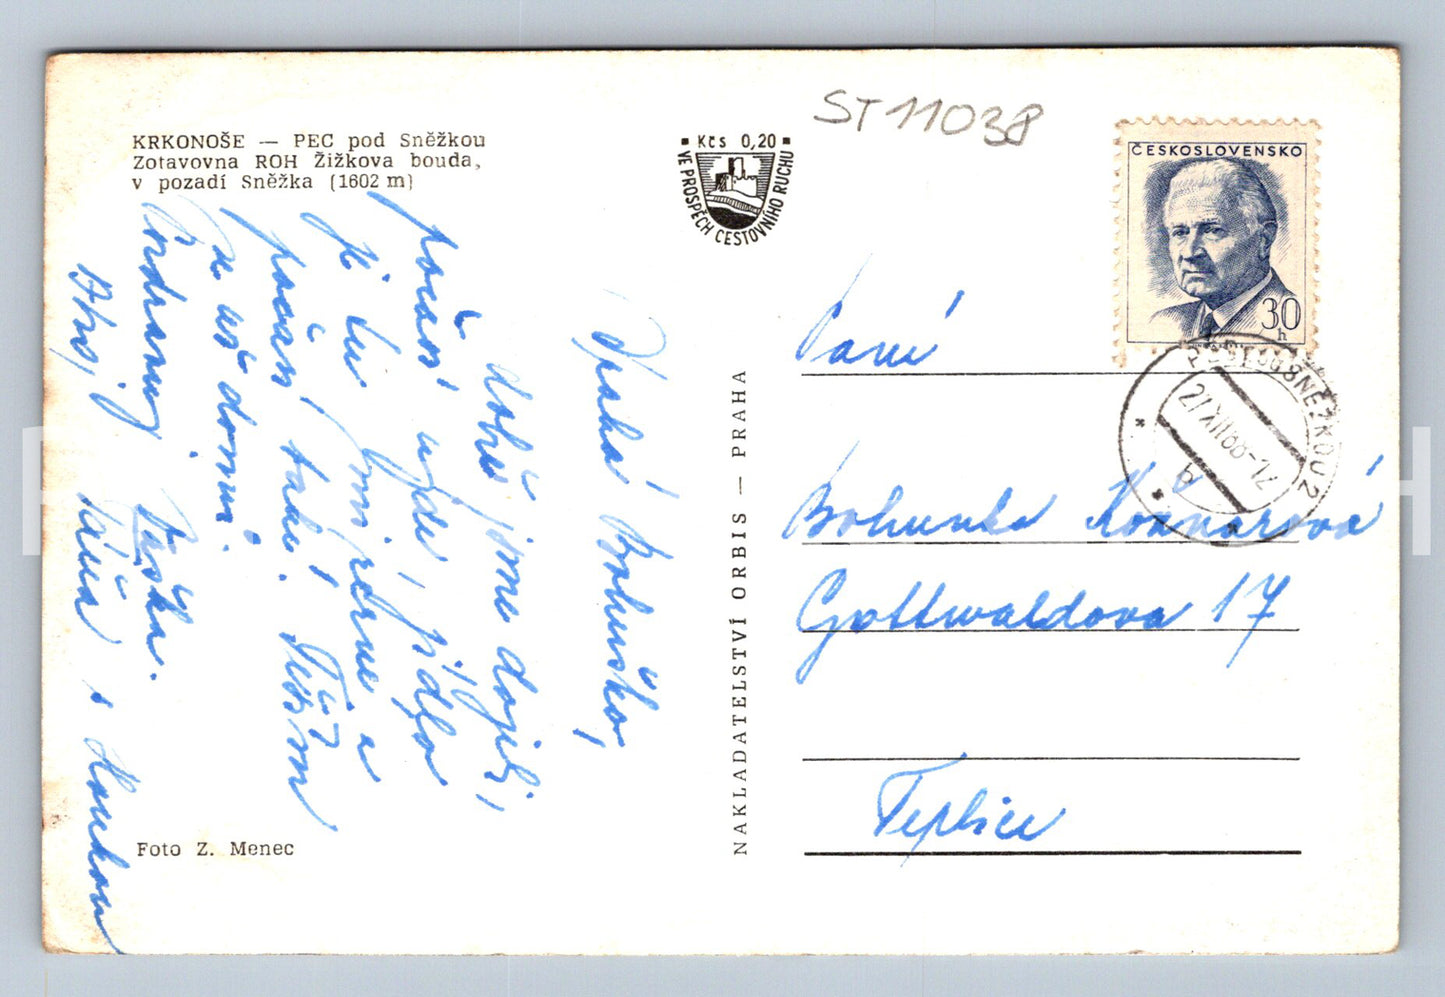 KRKONOŠE — PEC pod Sněžkou
Zotavovna ROH Žižkova bouda,
v pozadí Sněžka (1602 m)
Kčs 0,20
VE PROSPĚCH CESTOVNÍHO RUCHU
ST 11038
ČESKOSLOVENSKO
30
h
PEC POD SNĚŽKOU 2
b
Drahá Bohuško,
dobře jsme dojeli,
počasí ujde, jídlo
je tu
počasí také. Těším
a už domů.
Taška.
Ahoj Táňa s
Foto Z. Menec
NAKLADATELSTVÍ ORBIS — PRAHA
Paní
Bohunka
Gottwaldova 17
Teplice